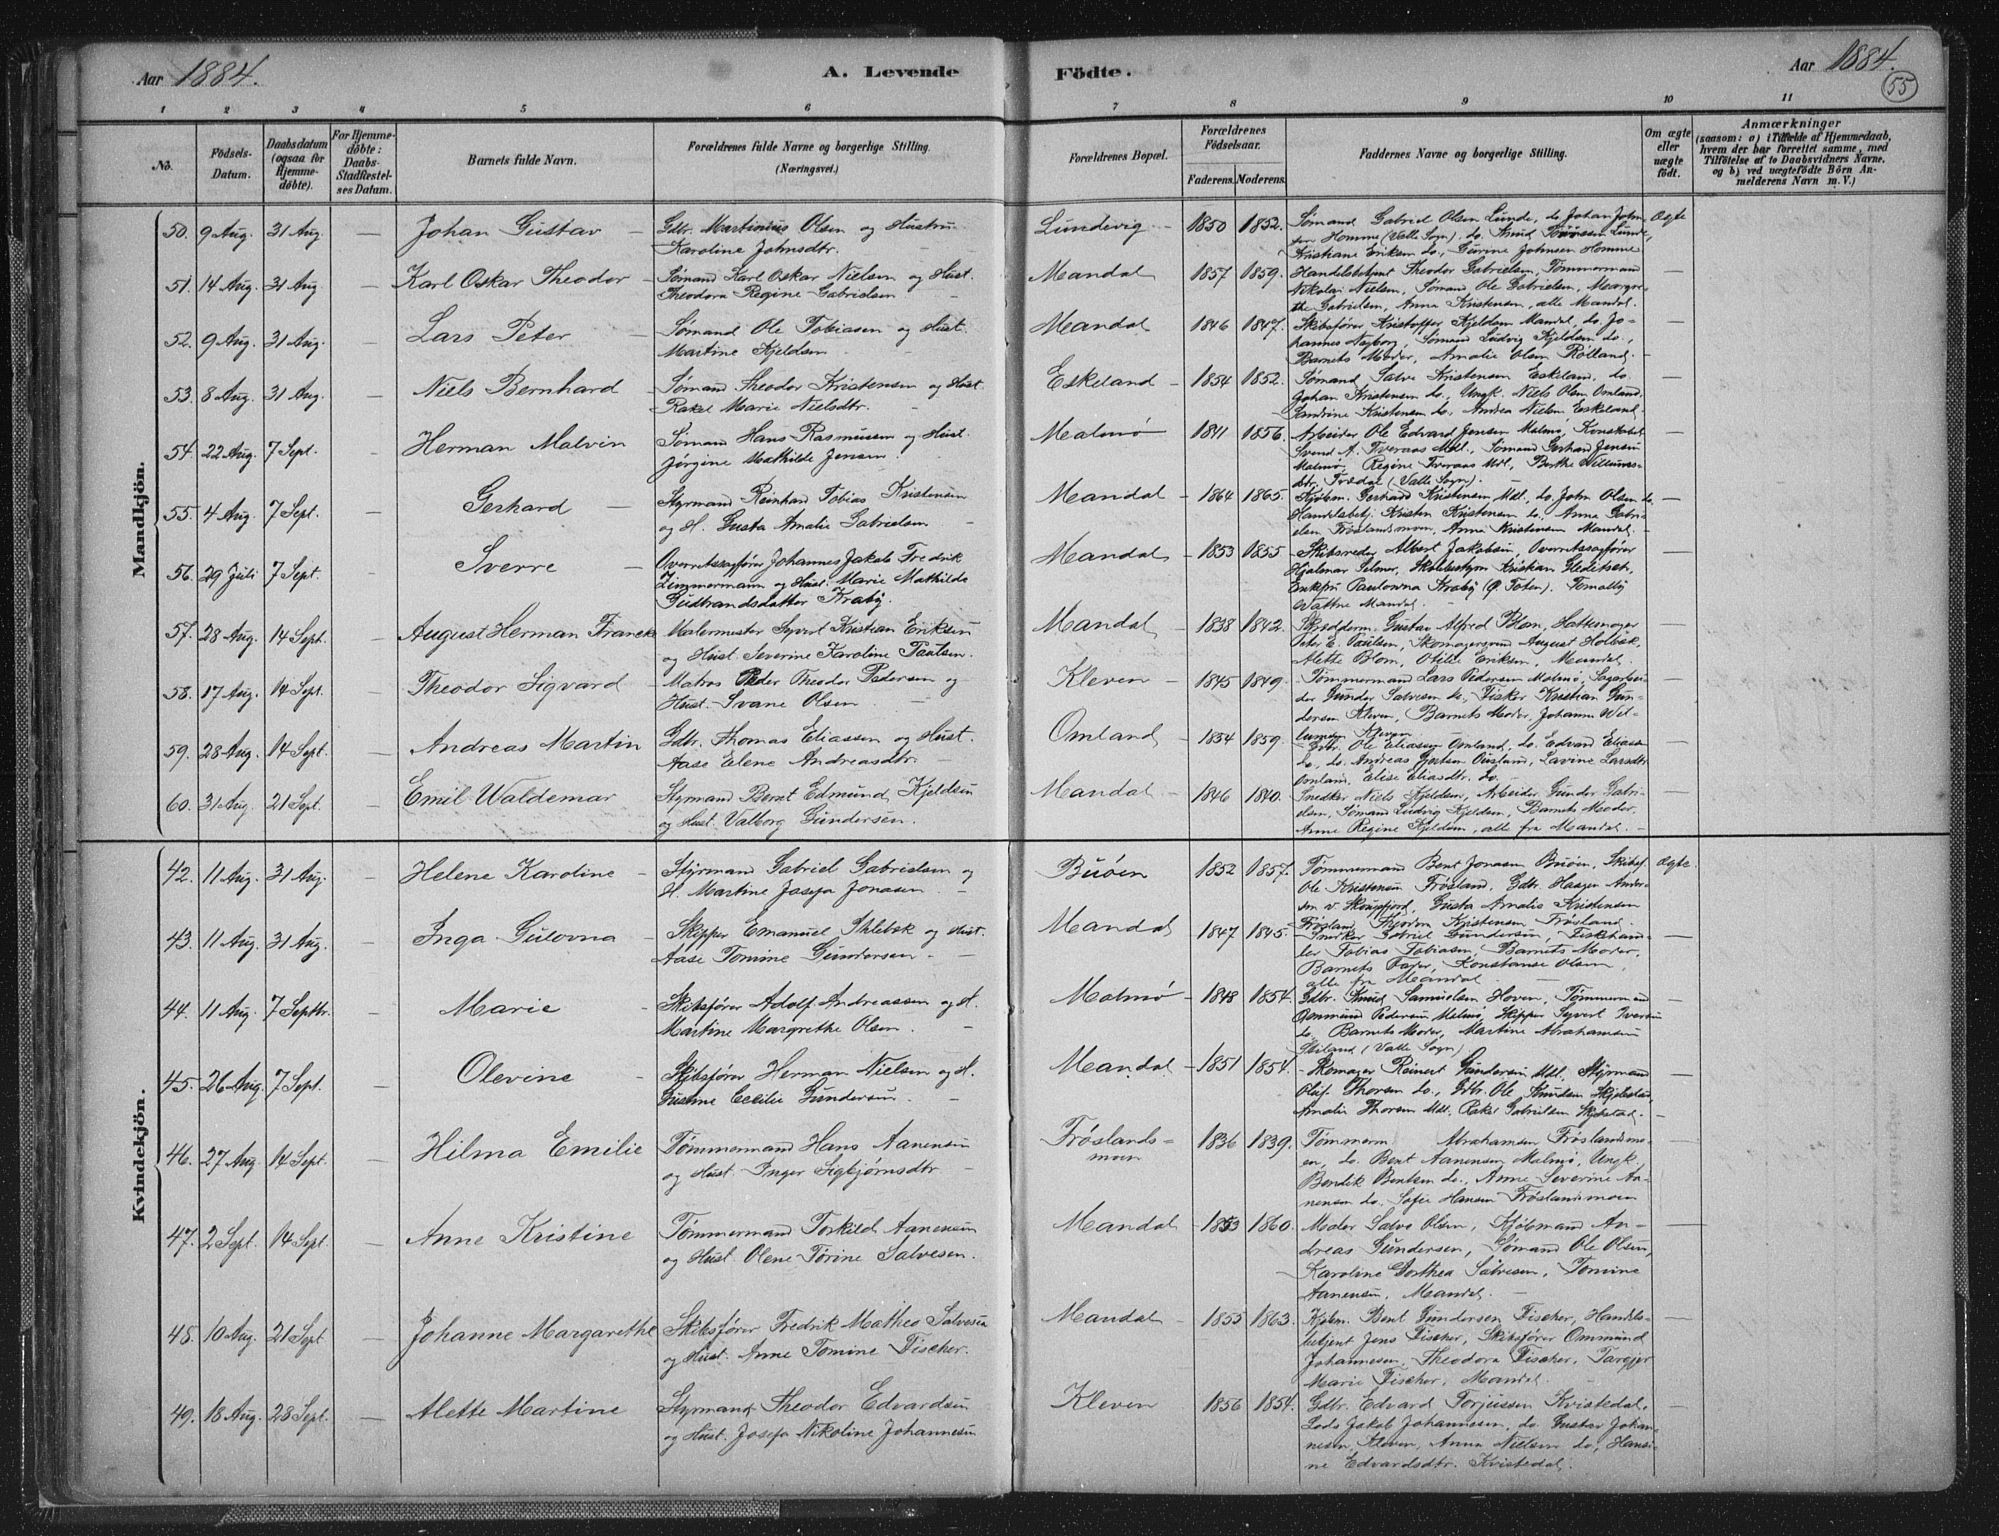 Aar 1884. A. Levende Födte. Aar 1884.
55
1 2 3 4 5 6 7 8 9 10 11
No. Födsels-Datum. Daabsdatum (ogsaa for Hjemmedøbte). For Hjemmedøbte: Daabs-Stadfæstelses Datum. Barnets fulde Navn. Forældrenes fulde Navne og borgerlige Stilling. (Næringsvei.) Forældrenes Bopæl. Forældrenes Födselsaar. Faderens. Moderens. Faddernes Navne og borgerlige Stilling. Om ægte eller uægte födt. Anmærkninger (saasom: a) i Tilfælde af Hjemmedaab, hvem der har forrettet samme, med Tilföielse af to Daabsvidners Navne, og b) ved uægtefödte Börn Anmelderens Navn m. V.)
Mandkjön.
50. 9 Aug. 31 Aug. — Johan Gustav — Gdbr. Martinius Olsen og Hustru Karoline Johnsdtr. Lundevig 1850 1852. Sømand Gabriel Olsen Lunde, do Johan John- Homme (Valle Sogn), do. Knud Lunde, Kristiane Eriksen do., Gurine Johnsen Homme Ægte
51. 14 Aug. 31 Aug — Karl Oskar Theodor Sømand Karl Oskar Nielsen og Hust. Theodora Regine Gabrielsen Mandal 1857 1859. Handelsbetjent Theodor Gabrielsen, Tømmermand Nikolai Nielsen, Sømand Ole Gabrielsen, Margrethe Gabrielsen, Anna Kristensen, alle Mandal. —
52. 9 Aug. 31 Aug. — Lars Peter — Sømand Ole Tobiasen og Hust. Martine Kjeldsen Mandal 1846 1847. Skibsfører Kristoffer Kjeldsen Mandal, do Johannes Nyborg, Sømand Ludvig Kjeldsen do., Barnets Moder, Amalie Olsen —
53. 8 Aug. 31 Aug. — Niels Bernhard — Sømand Theodor Kristensen og Hust. Rakel Marie Nielsdtr. Eskeland 1854 1852. Sømand Salve Kristensen Eskeland, do. Johan Kristensen do., Ungk. Niels Olsen Omland, Sandrine Kristensen do., Andrea Nielsen Eskeland. —
54. 22 Aug. 7 Sept. — Herman Malvin Sømand Hans Rasmussen og Hust. Jørgine Mathilde Jensen Malmø 1841 1856. Arbeider Ole Edvard Jensen Malmø, Svend A. Tveraas Mdl., Sømand Gerhard Jensen Malmø, Regine Tveraas Mdl., Berthe (Valle Sogn). —
55. 4 Aug. 7 Sept. — Gerhard — Styrmand Reinhart Tobias Kristensen og H. Gusta Amalie Gabrielsen Mandal 1864 1865. Kjøbm. Gerhard Kristensen Mdl., do. John Olsen do Handelsbetj. Kristen Kristensen do., Anne Gabrielsen Frøslandsmoen, Anne Kristensen Mandal. —
56. 29 Juli 7 Sept. — Sverre — Overretssagfører Johannes Jakob Fredrik Zimmermann og Hust. Marie Mathilde Gudbrandsdatter Kraby. Mandal 1853 1855 Skibsreder Albert Jakobsen, Overretssagfører Hjalmar Selmer, Kristian Gleditsch, Enkefru Paulowna Kraby (Ø. Toten), Wattne Mandal. —
57. 28 Aug. 14 Sept. — August Herman Franck Malermester Syvert Kristian Eriksen og Hust. Severine Karoline Paulsen. Mandal 1838 1842. Skrædderm. Gustav Alfred Blom, Hattemager Peter E. Paulsen, Skomagersvend August Holbæk, Alette Blom, Otilie Eriksen, Mandal. —
58. 17 Aug. 14 Sept. — Theodor Sigvard Matros Peder Theodor Pedersen og Hust. Svane Olsen. Kleven 1845 1849. Tømmermand Lars Pedersen Malmø, Sagarbeider Gunder Salvesen do., Fisker Kristian Gundersen Kleven, Barnets Moder, Johanne Willumsen Kleven —
59. 28 Aug. 14 Sept. — Andreas Martin Gdbr. Thomas Eliassen og Hust. Aase Elene Andreasdtr. Omland 1854 1859. Gdbr. Ole Eliassen Omland, do. Edvard Eliassen do., do. Andreas Lavine Larsdtr. Omland, Elise Eliasdtr. do. —
60. 31 Aug. 21 Sept. — Emil Waldemar Styrmand Bernt Edmund Kjeldsen og Hust. Valborg Gundersen. Mandal 1846 1840. Snedker Niels Kjeldsen, Arbeider Gunder Gabrielsen, Sømand Ludvig Kjeldsen, Barnets Moder, Anne Regine Kjeldsen, alle fra Mandal. —
Kvindekjön.
42. 11 Aug. 31 Aug. — Helene Karoline — Styrmand Gabriel Gabrielsen og H. Martine Josefa Jonasen. Buøen 1852 1857. Tømmermand Bent Jonasen Buøen, Skibsf. Ole Kristensen Frøsland, Gdbr. Haagen Andersen v. Skougfjord, Gusta Amalie Kristensen Frøsland, Kristensen, Frøsland. Ægte.
43. 11 Aug. 31 Aug. — Inga Gulovna — Skipper Emanuel Ihlebek og Hust. Aase Tomine Gundersen. Mandal 1847 1845. Snedker Gabriel Gundersen, Fiskehandler Tobias Tobiasen, Barnets Moder, Barnets Fader, Konstanse Olsen, alle fra Mandal —
44. 11 Aug. 7 Septbr. — Marie — Skibsfører Adolf Andreassen og H. Martine Margrethe Olsen. Malmø 1848 1854. Gdbr. Knud Samuelsen Hoven, Tømmermand Ommund Pedersen Malmø, Skipper Syvert Iversen do., Barnets Moder, Martine Abrahamsen (Valle Sogn) —
45. 26 Aug. 7 Sept. — Olevine Skibsfører Herman Nielsen og H. Gustine Cecilie Gundersen. Mandal 1851 1854. Skomager Reinert Gundersen Mdl., Styrmand Oluf Thorsen do., Gdbr. Ole Knudsen Skjebstad, Amalie Thorsen Mdl., Rakel Gabrielsen Skjebstad. —
46. 27 Aug. 14 Sept. — Hilma Emilie Tømmermand Hans Aanensen og Hust. Inger Sigbjørnsdtr. Frøslandsmoen 1836 1839. Tømmerm Abrahamsen Frøslandsmoen, do. Bent Aanensen Malmø, Ungk. Bendik Bentsen do., Anne Severine Aanensen do., Sofie Hansen Frøslandsmoen —
47. 2 Sept. 14 Sept. — Anne Kristine Tømmermand Torkild Aanensen og Hust. Olene Torine Salvesen. Mandal 1853 1860. Maler Salve Olsen, Kjøbmand Andreas Gundersen, Sømand Ole Olsen, Karoline Dorthea Salvesen, Tomine Aanensen, Mandal. —
48. 10 Aug. 21 Sept. — Johanne Margarethe Skibsfører Fredrik Matheo Salvesen og Hust. Anne Tomine Fischer. Mandal 1855 1863. Kjøbm. Bent Gundersen Fischer, Handelsbetjent Jens Fischer, Skibsfører Ommund Johannesen, Theodora Fischer, Targjer Marie Fischer, Mandal. —
49. 18 Aug. 28 Sept. — Alette Martine Styrmand Theodor Edvardsen og Hust. Josefa Nikoline Johannesen Kleven 1856 1854. Gdbr. Edvard Torjussen Kvistedal, Lods Jakob Johannesen, do. Gustav Johannesen, Kleven, Anna Nielsen do., Hansine Edvardsdtr. Kvistedal. —